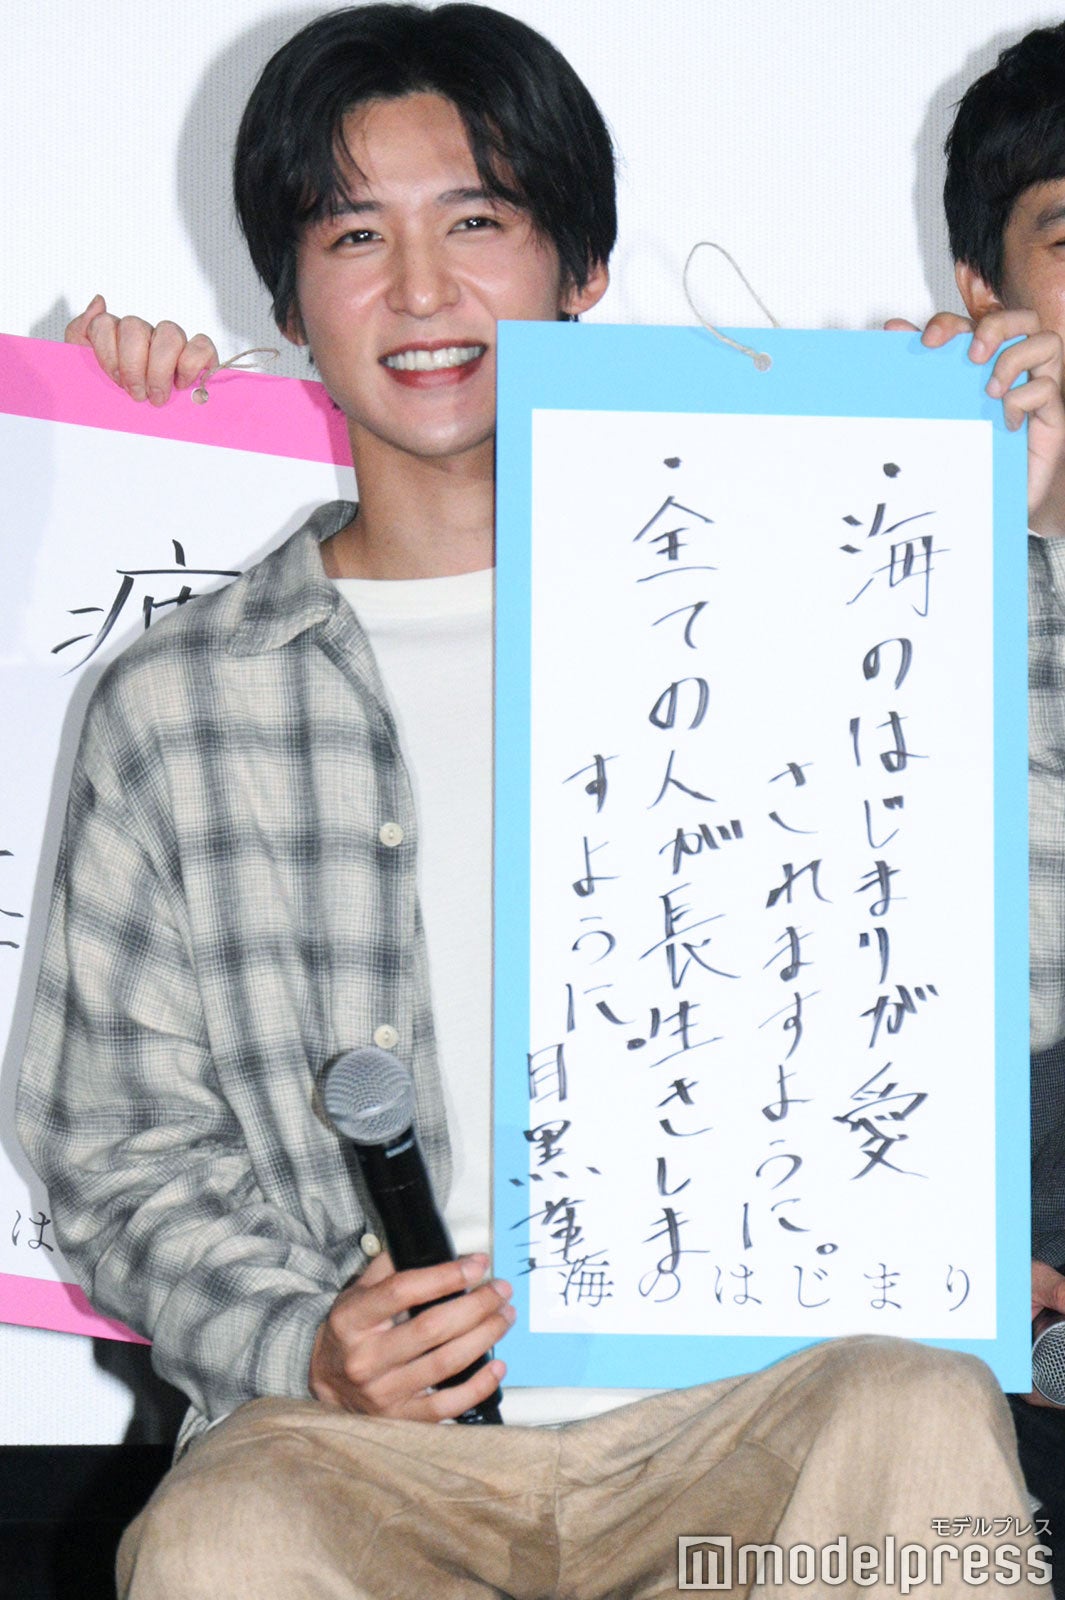 ・海のはじまりが愛
されますように。
・全ての人が長生きしま
すように。
目黒蓮
海のはじまり
は
モデルプレス
modelpress